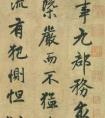 事九郡務
際嚴而不猛
流有犯惻怛